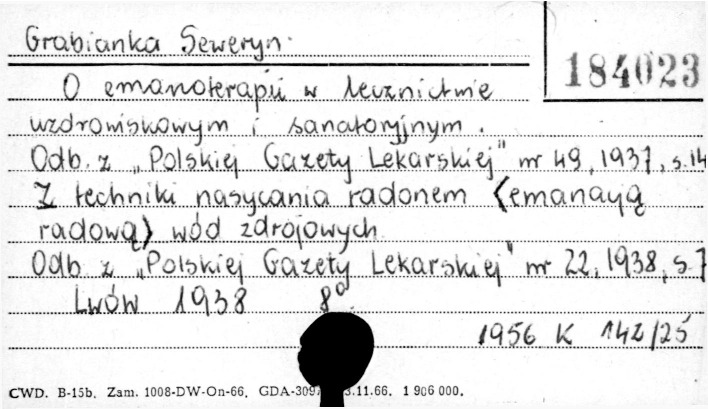 Grabianka Seweryn.
184023
O emanoterapii w lecznictwie
uzdrowiskowym i sanatoryjnym.
Odb. z „Polskiej Gazety Lekarskiej" nr 49, 1937, s. 14
Z techniki nasycania radonem (emanacją
radową) wód zdrojowych
Odb. z „Polskiej Gazety Lekarskiej" nr 22, 1938, s. 7
Lwów 1938 8°
1956 K 142/25
CWD. B-15b. Zam. 1008-DW-On-66. GDA-309 3.11.66. 1 906 000.